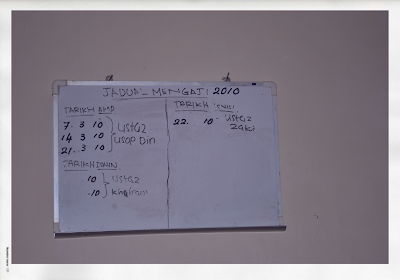 JADUAL MENGAJI 2010
TARIKH AHAD
7. 3 10
14 3 10
21. 3 10
UstGZ
USOP Din
TARIKH ISNIN
10
.10
UstGZ
Khairun
TARIKH
22. 10 - UstGZ
Zaki